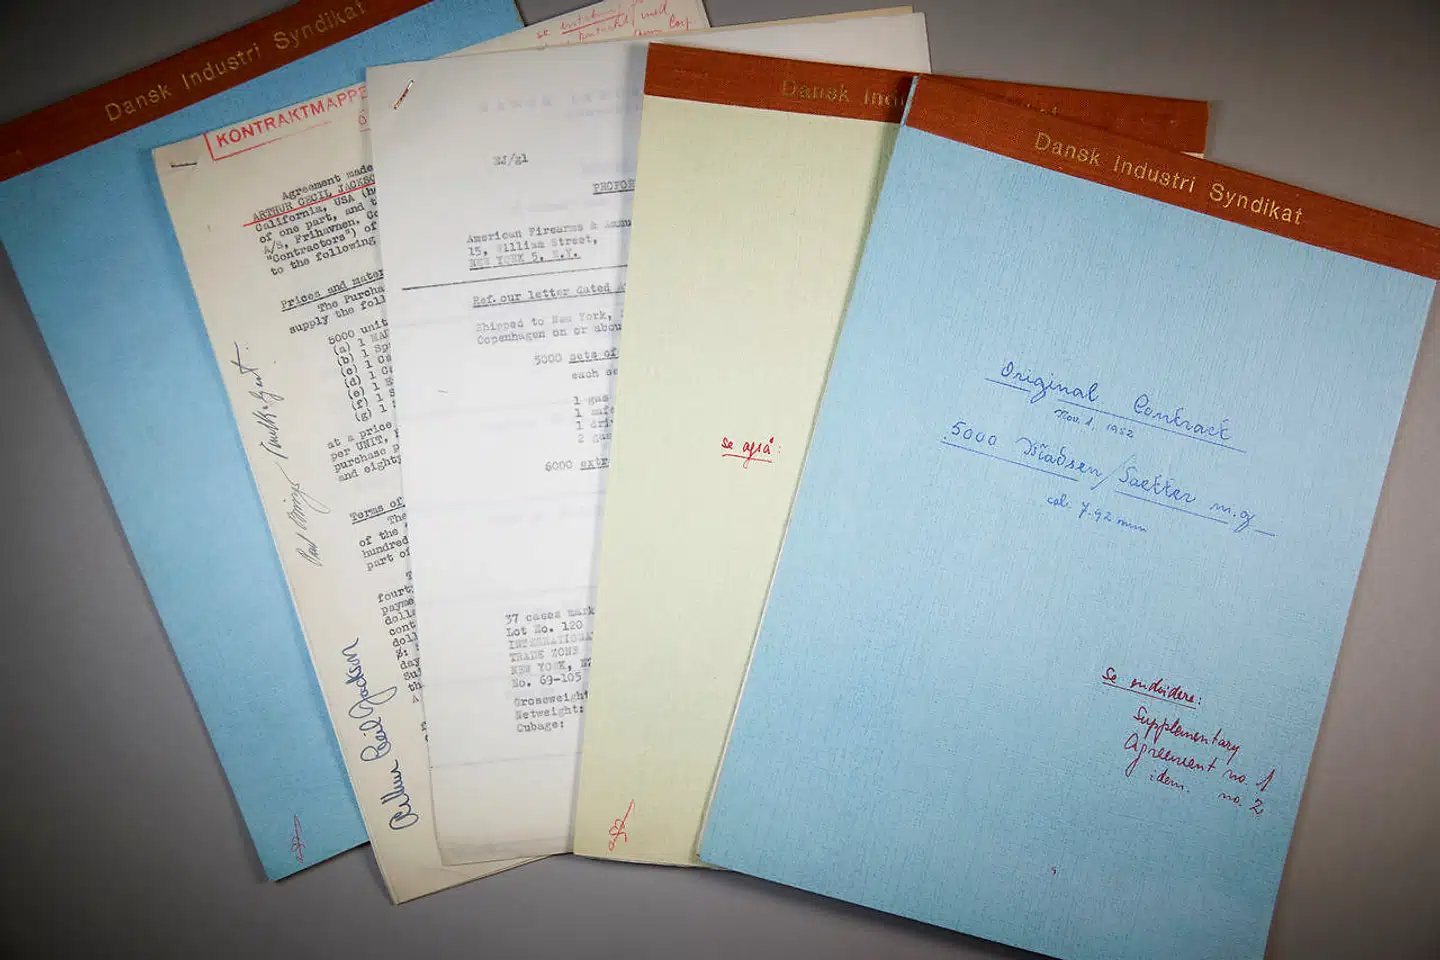 Dansk Industri Syndikat
KONTRAKTMAPPE
Agreement made
ARTHUR CECIL JACKSO
California, USA (h
of one part, and t
A/S, Frihavnen, Co
"Contractors") of
to the following
Prices and mater
The Purcha
supply the foll
5000 unit
(a) 1 MAD
(b) 1 Sp
(c) 1 Ca
(d) 1 C
(e) 1
(f) 1
(g) 1
at a price
per UNIT,
purchase p
and eighty
Terms of
The
of the
hundred
part of
fourt
payme
dolla
cont
doll
day
Sul
th
Arthur Cecil Jackson
se
med
EJ/gl
PROFOR
American Firearms & Ammu
15, William Street,
NEW YORK 5, N.Y.
Ref. our letter dated A
Shipped to New York,
Copenhagen on or abou
5000 sets of
each se
1 gas
1 safe
1 dri
2 gas
6000 extr
37 cases mark
Lot No. 120
INTERNATIONA
TRADE ZONE
NEW YORK, N
No. 69-105
Grossweight
Netweight:
Cubage:
Dansk Indu
se også:
Dansk Industri Syndikat
Original Contract
Nov. 1, 1952
5000 Madsen/Saetter m.g
cal. 7.92 mm
Se endvidere:
Supplementary
Agreement no. 1
idem. no. 2